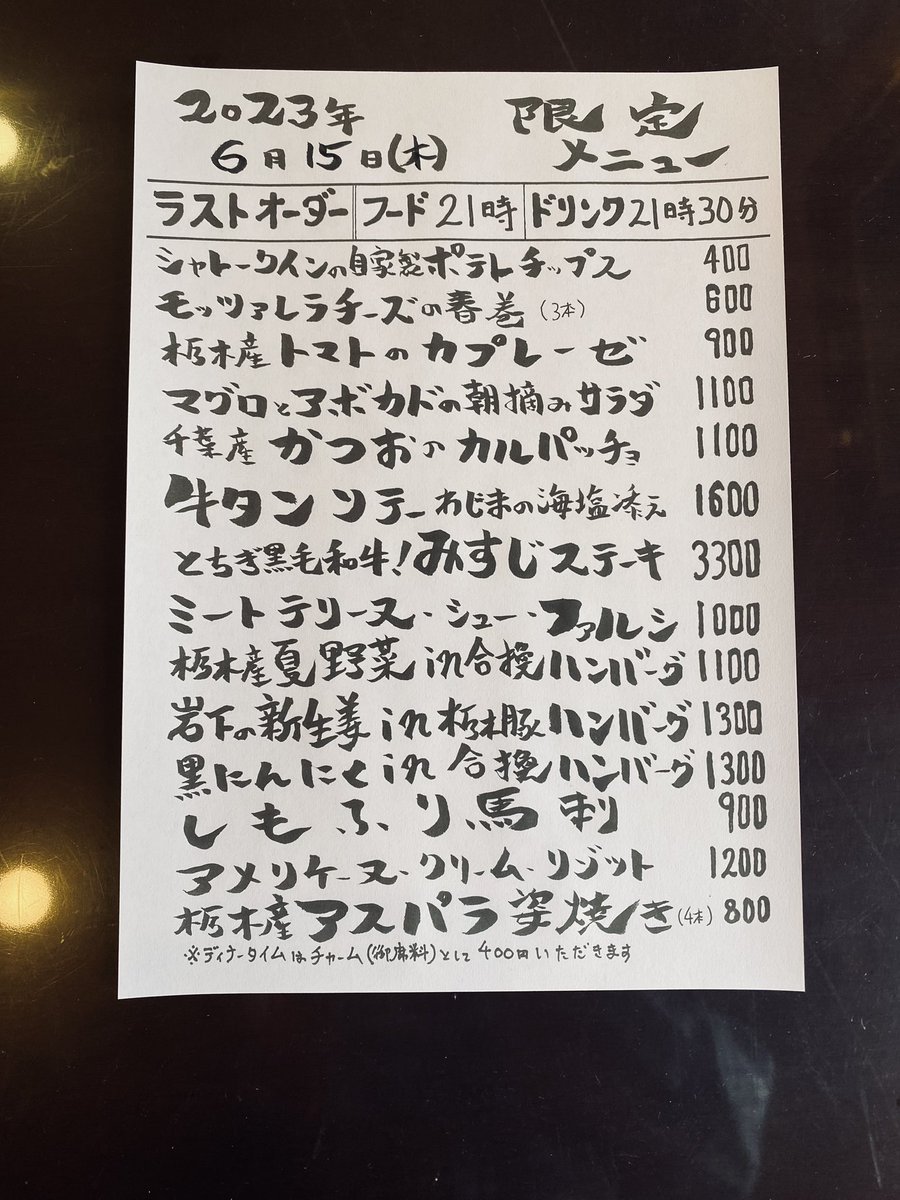 2023年 限定
6月15日(木) メニュー
ラストオーダー フード21時 ドリンク21時30分
シャトークインの自家製ポテトチップス 400
モッツァレラチーズの春巻(3本) 600
栃木産トマトのカプレーゼ 900
マグロとアボカドの朝摘みサラダ 1100
千葉産かつおのカルパッチョ 1100
牛タンソテーわじまの海塩添え 1600
とちぎ黒毛和牛!みすじステーキ 3300
ミートテリーヌ・シュー・ファルシ 1000
栃木産夏野菜in合挽ハンバーグ 1100
岩下の新生姜in栃木豚ハンバーグ 1300
黒にんにくin合挽ハンバーグ 1300
しもふり馬刺 900
アメリケーヌ・クリーム・リゾット 1200
栃木産アスパラ姿焼き(4本) 800
※ディナータイムはチャーム(御席料)として400円いただきます